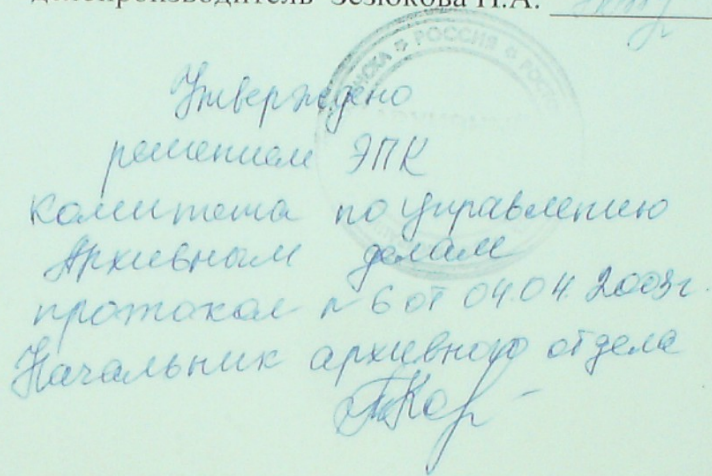 делопроизводитель Зезюкова Н.А.
РОССИЯ РОСТО
Утверждено
решением ЭПК
комитета по управлению
Архивным делам
протокол № 6 от 04.04.2003г.
Начальник архивного отдела